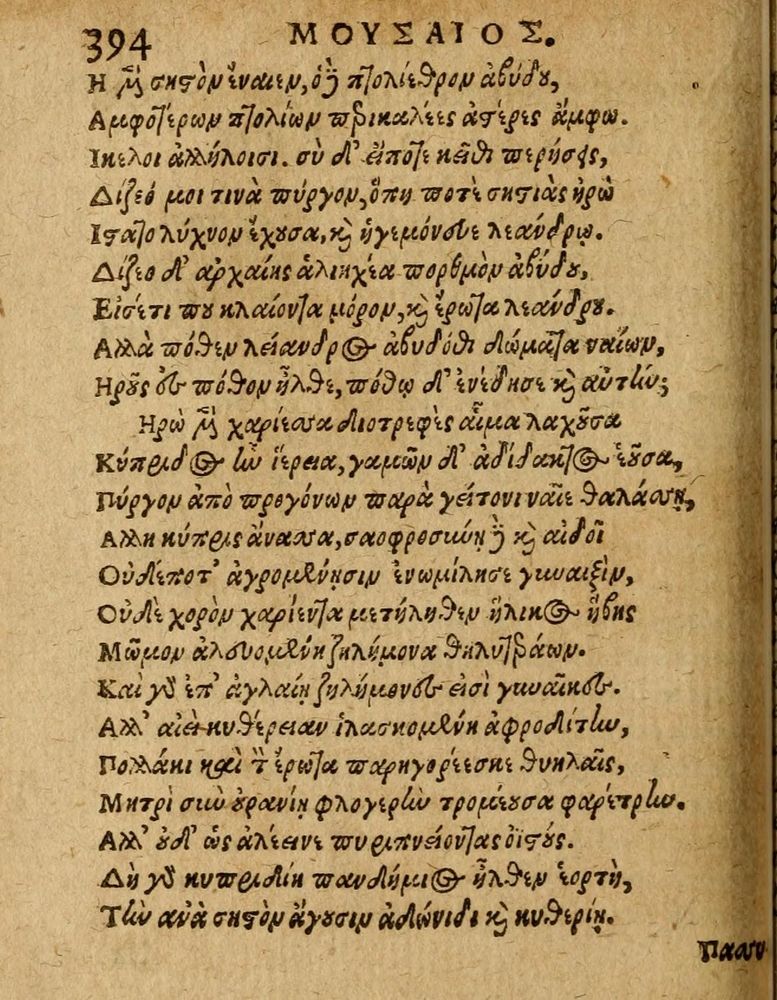 394 ΜΟΥΣΑΙΟΣ.
Η μὲν σηστὸν ἔναιεν, ὁ δὲ πτολίεθρον ἀβύδου,
Αμφοτέρων πτολίων περικαλλέες ἀστέρες ἄμφω.
Ικελοι ἀλλήλοισι. σὺ δ' εἴποτε κεῖθι περήσεις,
Δίζεό μοι τινὰ πύργον, ὅπη ποτὲ σηστιὰς ἡρὼ
Ιστατο λύχνον ἔχουσα, καὶ ἡγεμόνευε λεάνδρῳ.
Δίζεο δ' ἀρχαίης ἁλιηχέα πορθμὸν ἀβύδου,
Εἰσέτι που κλαίοντα μόρον, καὶ ἔρωτα λεάνδρου.
Αλλὰ πόθεν λείανδρος ἀβυδόθι δώματα ναίων,
Ηροῦς ἐς πόθον ἦλθε, πόθῳ δ' ἐνέδησε καὶ αὐτήν;
Ηρὼ μὲν χαρίεσσα διοτρεφὲς αἷμα λαχοῦσα
Κύπριδος ἦν ἱέρεια, γαμῶν δ' ἀδίδακτος ἐοῦσα,
Πύργον ἀπὸ προγόνων παρὰ γείτονι ναῖε θαλάσσῃ,
Αλλη κύπρις ἄνασσα, σαοφροσύνῃ δὲ καὶ αἰδοῖ
Οὐδέποτ' ἀγρομένῃσιν ἐνωμίλησε γυναιξὶν,
Οὐδὲ χορὸν χαρίεντα μετήλυθεν ἥλικος ἥβης
Μῶμον ἀλευομένη ζηλήμονα θηλυτεράων.
Καὶ γὰρ ἐπ' ἀγλαίῃ ζηλήμονές εἰσι γυναῖκες.
Αλλ' αἰεὶ κυθέρειαν ἱλασκομένη ἀφροδίτην,
Πολλάκι καὶ τὸν ἔρωτα παρηγορέεσκε θυηλαῖς,
Μητρὶ σὺν οὐρανίῃ φλογερὴν τρομέουσα φαρέτρην.
Αλλ' οὐδ' ὣς ἀλέεινε πυριπνείοντας ὀϊστούς.
Δὴ γὰρ κυπριδίη πανδήμιος ἦλθεν ἑορτὴ,
Τὴν ἀνὰ σηστὸν ἄγουσιν ἀδώνιδι καὶ κυθερίῃ.
Πασσυ